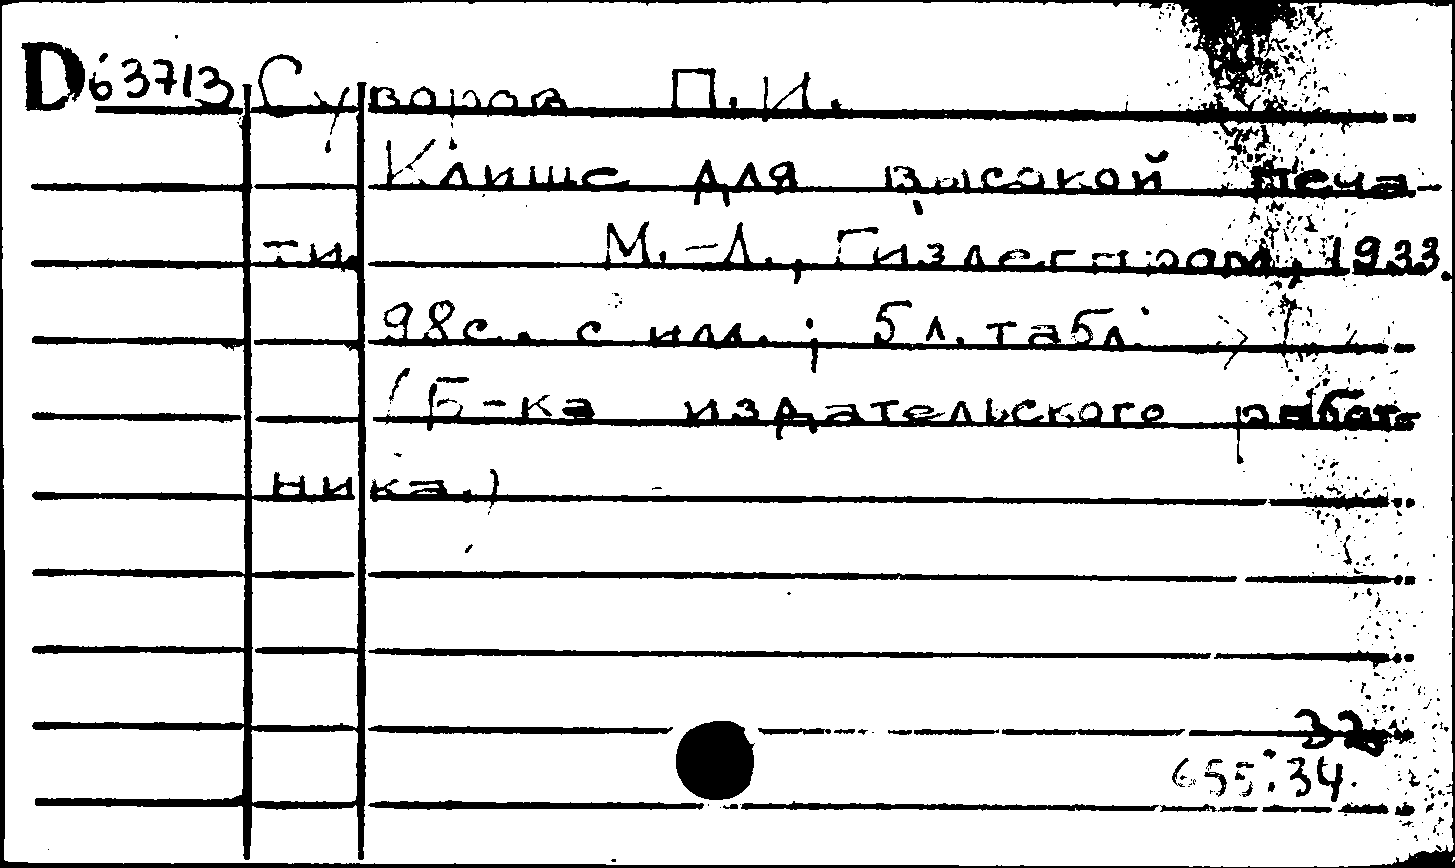 D63713 Суворов П.И.
Клише для высокой печа-
ти. М.-Л., Гизлегпром, 1933.
98с. с илл.; 5 л. табл.
(Б-ка издательского работ-
ника.)
32
655:34.